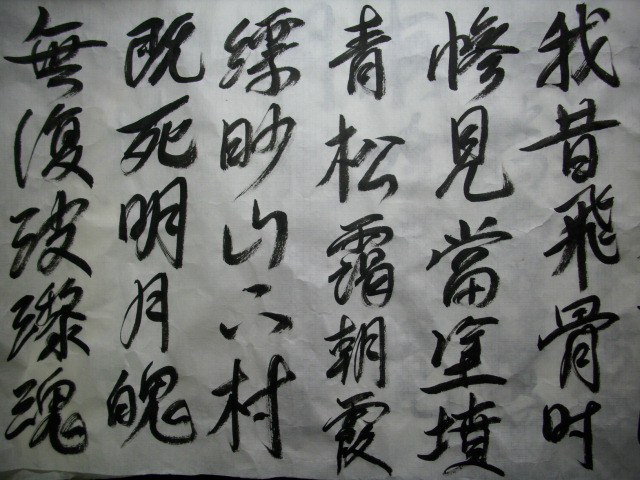 我昔飛骨时
慘見當塗墳
青松靄朝霞
縹眇山下村
既死明月魄
無復玻瓈魂